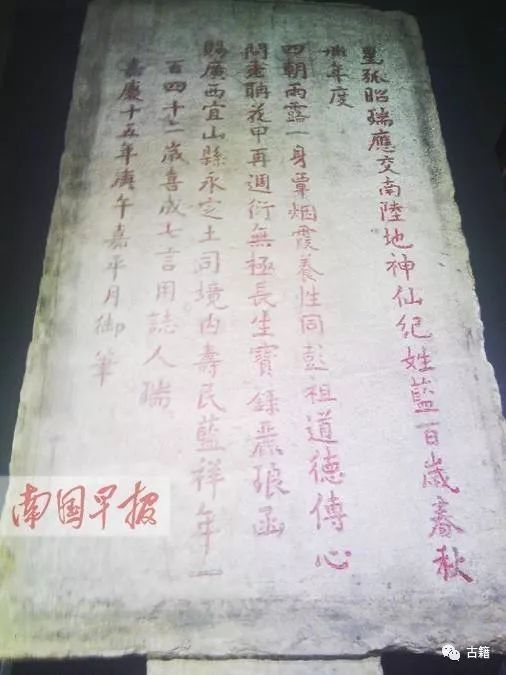 星弧昭瑞應交南陸地神仙紀姓藍百歲春秋
卌年度
四朝雨露一身覃烟霞養性同彭祖道德傳心
問老聃花甲再週衍無極長生寶錄麗琅函
賜廣西宜山縣永定土司境內壽民藍祥年一
百四十二歲喜成七言用誌人瑞
嘉慶十五年庚午嘉平月御筆
南国早报
古籍